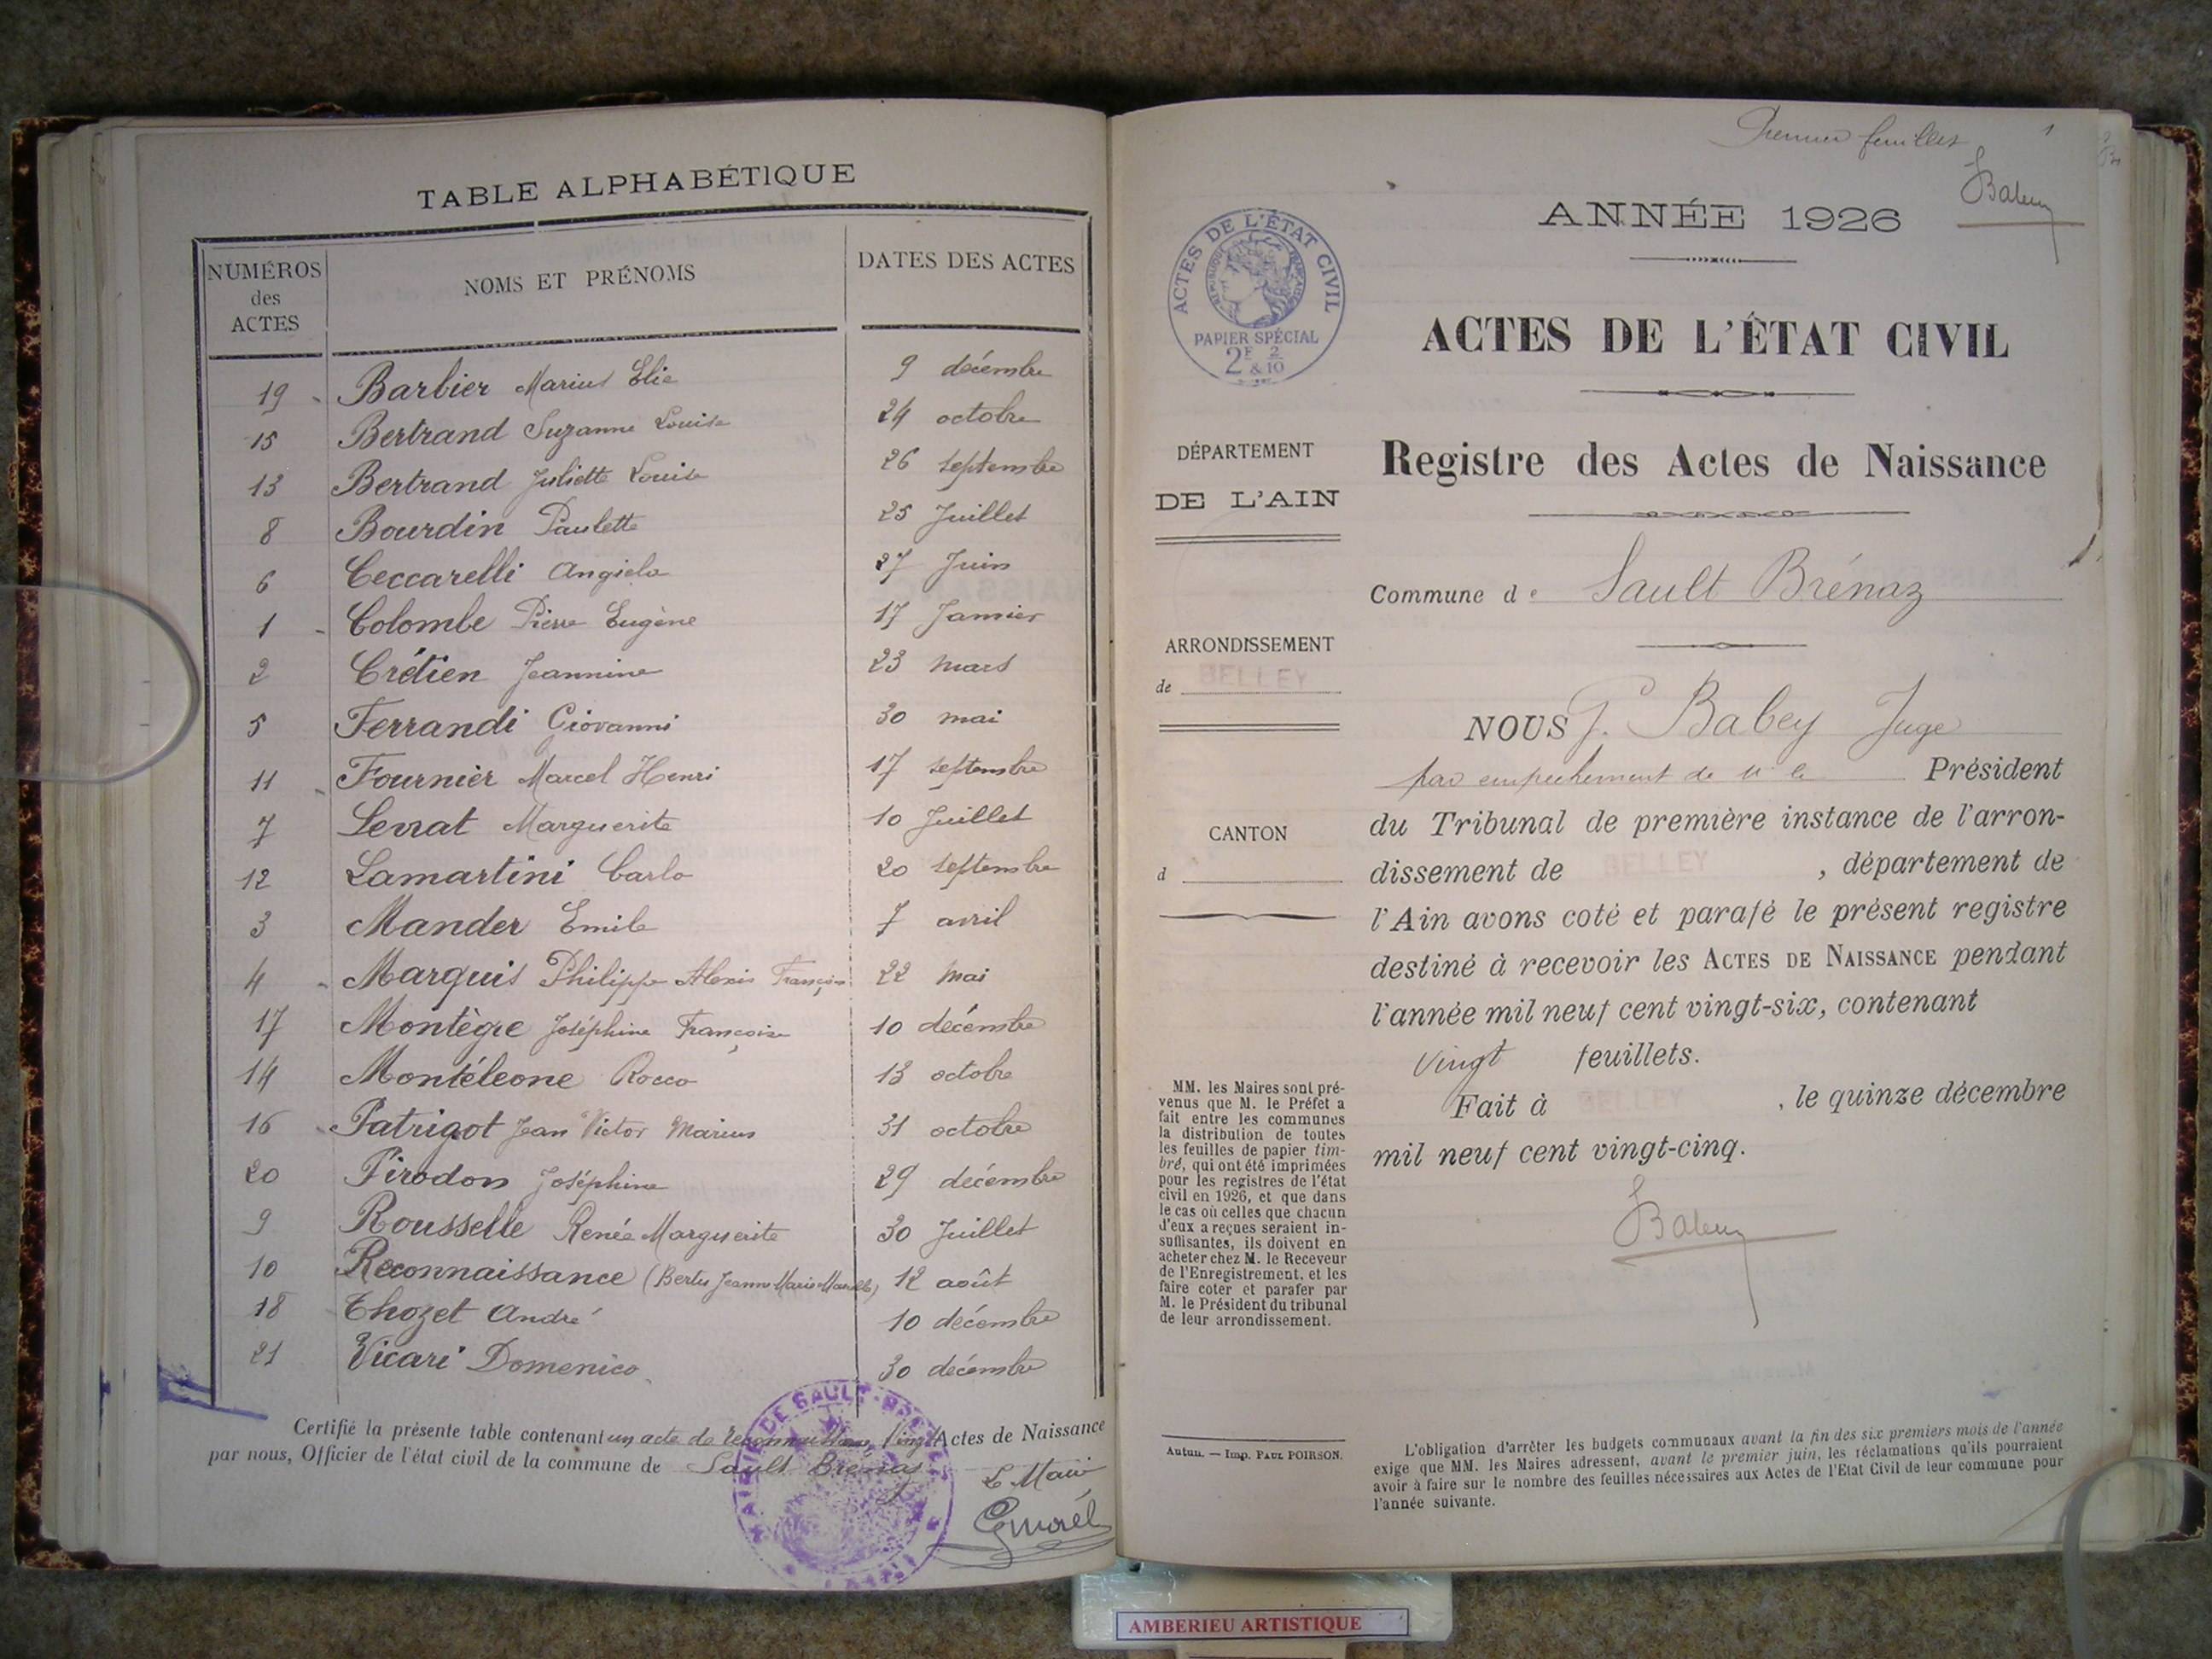 TABLE ALPHABÉTIQUE
NUMÉROS des ACTES NOMS ET PRÉNOMS DATES DES ACTES
19 Barbier Marius Elie 9 décembre
15 Bertrand Suzanne Louise 24 octobre
13 Bertrand Juliette Louise 26 septembre
8 Bourdin Paulette 25 Juillet
6 Ceccarelli Angiela 27 Juin
1 Colombe Pierre Eugène 17 Janvier
2 Crétien Jeannine 23 mars
5 Ferrandi Giovanni 30 mai
11 Fournier Marcel Henri 17 septembre
7 Levrat Marguerite 10 Juillet
12 Lamartini Carlo 20 septembre
3 Mander Emile 7 avril
4 Marquis Philippe Alexis François 22 mai
17 Montègre Joséphine Françoise 10 décembre
14 Montéleone Rocco 13 octobre
16 Patrigot Jean Victor Marius 31 octobre
20 Pirodon Joséphine 29 décembre
9 Rousselle Renée Marguerite 30 Juillet
10 Reconnaissance (Jeanne Marie 12 août
18 Thozet André 10 décembre
21 Vicari Domenico 30 décembre
Certifié la présente table contenant un acte de reconnaissance, Vingt Actes de Naissance
par nous, Officier de l'état civil de la commune de Sault Brénaz
Le Maire
MAIRIE DE SAULT-BRÉNAZ
Premier feuillet 1
ANNÉE 1926
ACTES DE L'ÉTAT CIVIL
RÉPUBLIQUE FRANÇAISE
PAPIER SPÉCIAL
2F & 2/10
ACTES DE L'ÉTAT CIVIL
DÉPARTEMENT
DE L'AIN
Registre des Actes de Naissance
Commune de Sault Brénaz
ARRONDISSEMENT
de BELLEY
CANTON
d
NOUS Babey Juge
par empêchement de M le Président
du Tribunal de première instance de l'arron-
dissement de BELLEY, département de
l'Ain avons coté et parafé le présent registre
destiné à recevoir les ACTES DE NAISSANCE pendant
l'année mil neuf cent vingt-six, contenant
Vingt feuillets.
Fait à BELLEY, le quinze décembre
mil neuf cent vingt-cinq.
MM. les Maires sont pré-
venus que M. le Préfet a
fait entre les communes
la distribution de toutes
les feuilles de papier tim-
bré, qui ont été imprimées
pour les registres de l'état
civil en 1926, et que dans
le cas où celles que chacun
d'eux a reçues seraient in-
suffisantes, ils doivent en
acheter chez M. le Receveur
de l'Enregistrement, et les
faire coter et parafer par
M. le Président du tribunal
de leur arrondissement.
Autun. — Imp. PAUL POIRSON.
L'obligation d'arrêter les budgets communaux avant la fin des six premiers mois de l'année
exige que MM. les Maires adressent, avant le premier juin, les réclamations qu'ils pourraient
avoir à faire sur le nombre des feuilles nécessaires aux Actes de l'Etat Civil de leur commune pour
l'année suivante.
AMBERIEU ARTISTIQUE